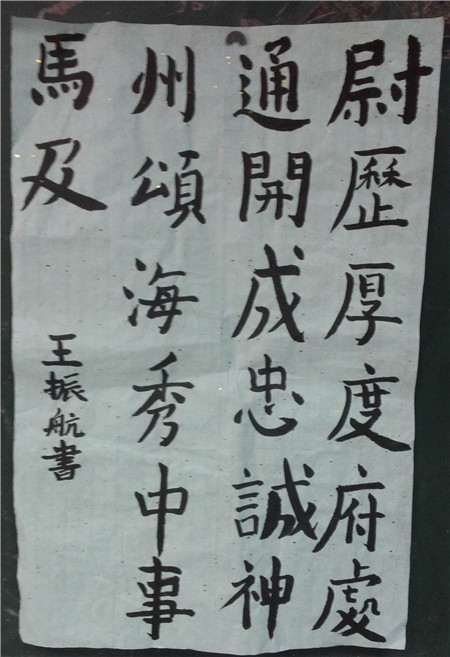 尉歷厚度府處
通開成忠誠神
州頌海秀中事
馬及
王振航書